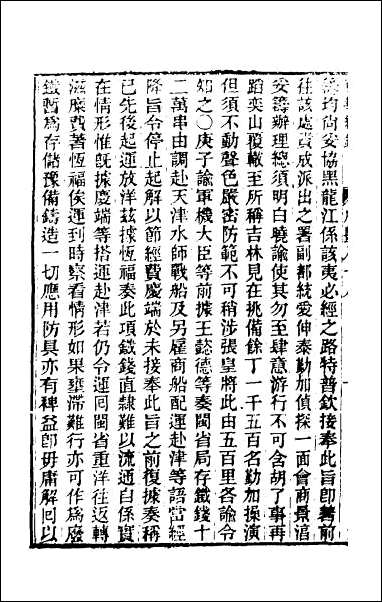 籌均尚妥協黑龍江係該夷必經之路特普欽接奉此旨卽著前
往該處責成派出之署副都統愛伸泰勤加偵探一面會商景淳
妥籌辦理總須明白曉諭使其勿至肆意游行不可含胡了事再
蹈奕山覆轍至所稱吉林見在挑備餘丁一千五百名勤加操演
但須不動聲色嚴密防範不可稍涉張皇將此由五百里各諭令
知之〇庚子諭軍機大臣等前據王懿德等奏閩省局存鐵錢十
二萬串由調赴天津水師戰船及另雇商船配運赴津等語當經
降旨令停止起解以節經費慶端於未接奉此旨之前復據奏稱
已先後起運放洋茲據恆福奏此項鐵錢直隸難以流通自係實
在情形惟旣據慶端等搭運赴津若仍令運回閩省重洋往返轉
滋糜費著恆福俟運到時察看情形如果壅滯難行亦可作為廢
鐵暫為存儲豫備鑄造一切應用防具亦有裨益卽毋庸解回以